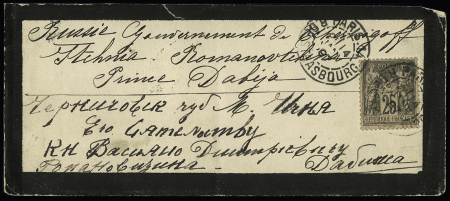 Russie Gouvernement de Chernigoff
Itchnia Romanovka
Prince Dabija
Черниговск губ М. Ичня
Его Сиятельству
Кн Василию Дмитриевичу
Романовщина Дабижа
PARIS
STRASBOURG
25